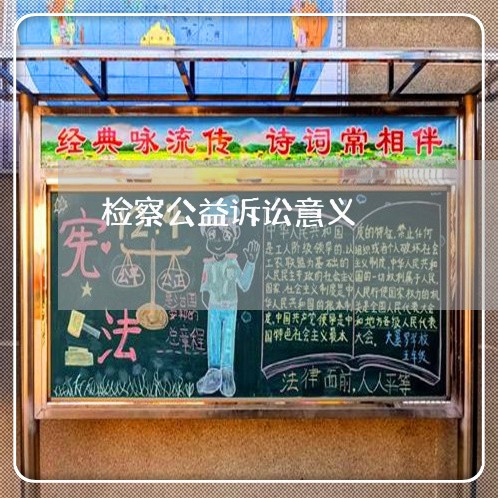 经典咏流传 诗词常相伴
检察公益诉讼意义
宪
法
公平
公正
的
总章程
中华人民共和国
是工人阶级领导的,以
工农联盟为基础的
人民民主专政的社会主义
国家.社会主义制度是中
华人民共和国的根本制
度.中国共产党领导是中
国特色社会主义最本
质的特征.禁止任何
组织或者个人破坏社会
主义制度.中华人民共和
国的一切权利属于人民.
人民行使国家权力的机
关是全国人民代表大会
和地方各级人民代表
大会.
学校
五年级
法律面前,人人平等